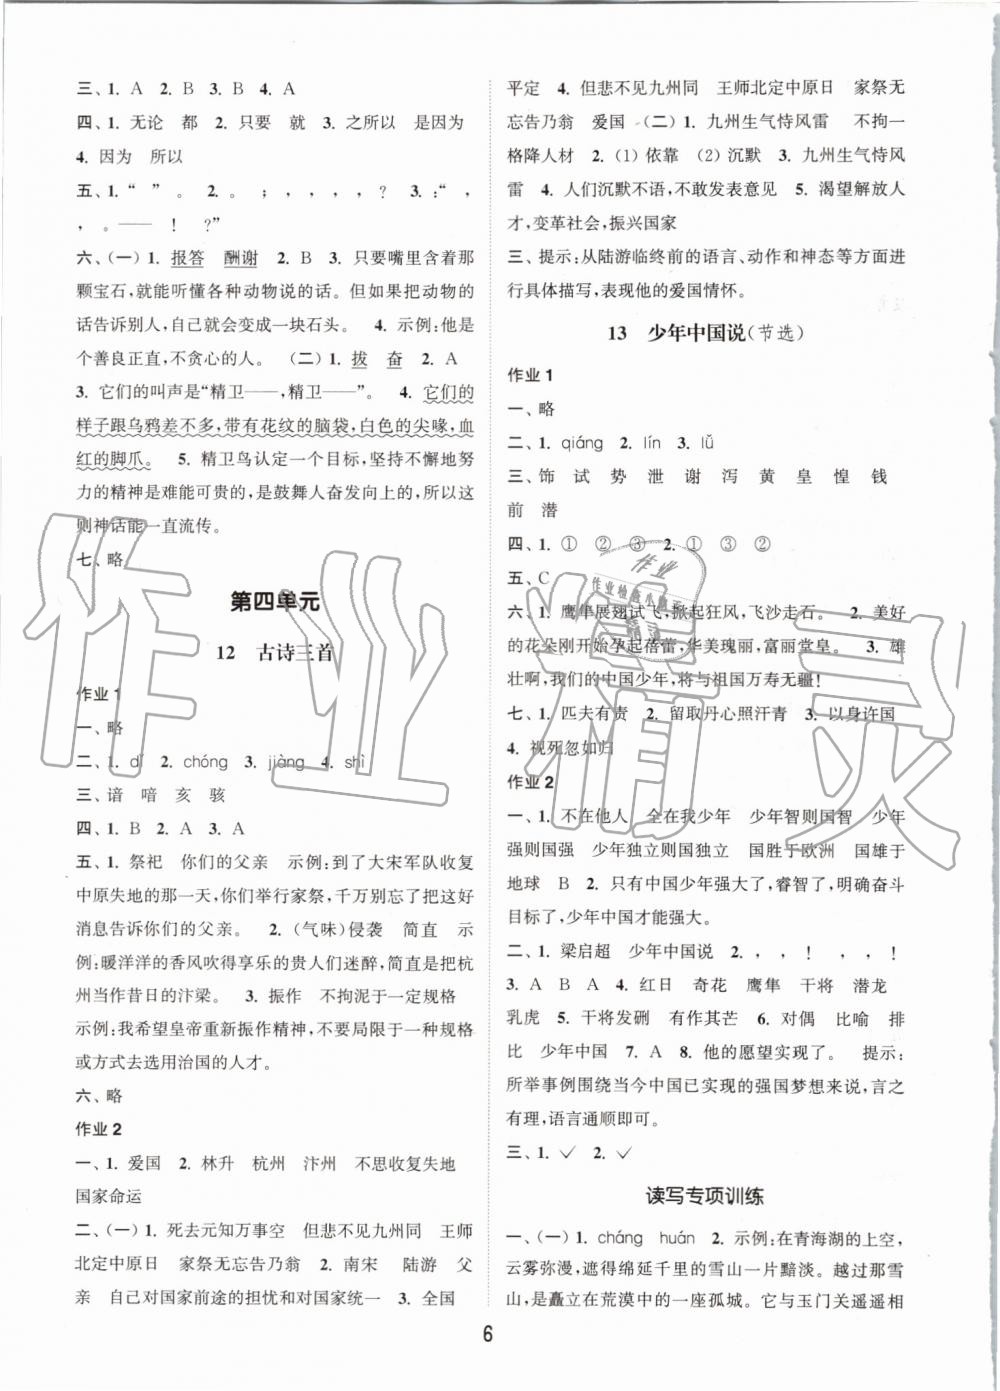 三、1. A 2. B 3. B 4. A
四、1. 无论 都 2. 只要 就 3. 之所以 是因为
4. 因为 所以
五、1. “ ” 。 2. 。 ； ， ， ， ， ？ 3. ：“ ，
， 。—— ！ ？”
六、(一) 1. 报答 酬谢 2. B 3. 只要嘴里含着那
颗宝石,就能听懂各种动物说的话。但如果把动物的
话告诉别人,自己就会变成一块石头。 4. 示例:他是
个善良正直,不贪心的人。 (二) 1. 拔 奋 2. A
3. 它们的叫声是“精卫——,精卫——”。 4. 它们的
样子跟乌鸦差不多,带有花纹的脑袋,白色的尖喙,血
红的脚爪。 5. 精卫鸟认定一个目标,坚持不懈地努
力的精神是难能可贵的,是鼓舞人奋发向上的,所以这
则神话能一直流传。
七、略
第四单元
12 古诗三首
作业 1
一、略
二、1. dǐ 2. chóng 3. jiàng 4. shì
三、谙 喑 亥 骇
四、1. B 2. A 3. A
五、1. 祭祀 你们的父亲 示例:到了大宋军队收复
中原失地的那一天,你们举行家祭,千万别忘记把这好
消息告诉你们的父亲。 2. (气味)侵袭 简直 示
例:暖洋洋的香风吹得享乐的贵人们迷醉,简直是把杭
州当作昔日的汴梁。 3. 振作 不拘泥于一定规格
示例:我希望皇帝重新振作精神,不要局限于一种规格
或方式去选用治国的人才。
六、略
作业 2
一、1. 爱国 2. 林升 杭州 汴州 不思收复失地
国家命运
二、(一) 1. 死去元知万事空 但悲不见九州同 王师
北定中原日 家祭无忘告乃翁 2. 南宋 陆游 父
亲 自己对国家前途的担忧和对国家统一 3. 全国
平定 4. 但悲不见九州同 王师北定中原日 家祭无
忘告乃翁 爱国 (二) 1. 九州生气恃风雷 不拘一
格降人材 2. (1) 依靠 (2) 沉默 3. 九州生气恃风
雷 4. 人们沉默不语,不敢发表意见 5. 渴望解放人
才,变革社会,振兴国家
三、提示:从陆游临终前的语言、动作和神态等方面进
行具体描写,表现他的爱国情怀。
13 少年中国说(节选)
作业 1
一、略
二、1. qiáng 2. lín 3. lǚ
三、饰 试 势 泄 谢 泻 黄 皇 惶 钱
前 潜
四、1. ① ② ③ 2. ① ③ ②
五、C
六、1. 鹰隼展翅试飞,掀起狂风,飞沙走石。 2. 美好
的花朵刚开始孕起蓓蕾,华美瑰丽,富丽堂皇。 3. 雄
壮啊,我们的中国少年,将与祖国万寿无疆!
七、1. 匹夫有责 2. 留取丹心照汗青 3. 以身许国
4. 视死忽如归
作业 2
一、1. 不在他人 全在我少年 少年智则国智 少年
强则国强 少年独立则国独立 国胜于欧洲 国雄于
地球 B 2. 只有中国少年强大了,睿智了,明确奋斗
目标了,少年中国才能强大。
二、1. 梁启超 少年中国说 2. ， ， ！ ， ， ！
3. A B A 4. 红日 奇花 鹰隼 干将 潜龙
乳虎 5. 干将发硎 有作其芒 6. 对偶 比喻 排
比 少年中国 7. A 8. 他的愿望实现了。 提示:
所举事例围绕当今中国已实现的强国梦想来说,言之
有理,语言通顺即可。
三、1. ✓ 2. ✓
读写专项训练
一、(一) 1. cháng huán 2. 示例:在青海湖的上空,
云雾弥漫,遮得绵延千里的雪山一片黯淡。越过那雪
山,是矗立在荒漠中的一座孤城。它与玉门关遥遥相
6
作业精灵